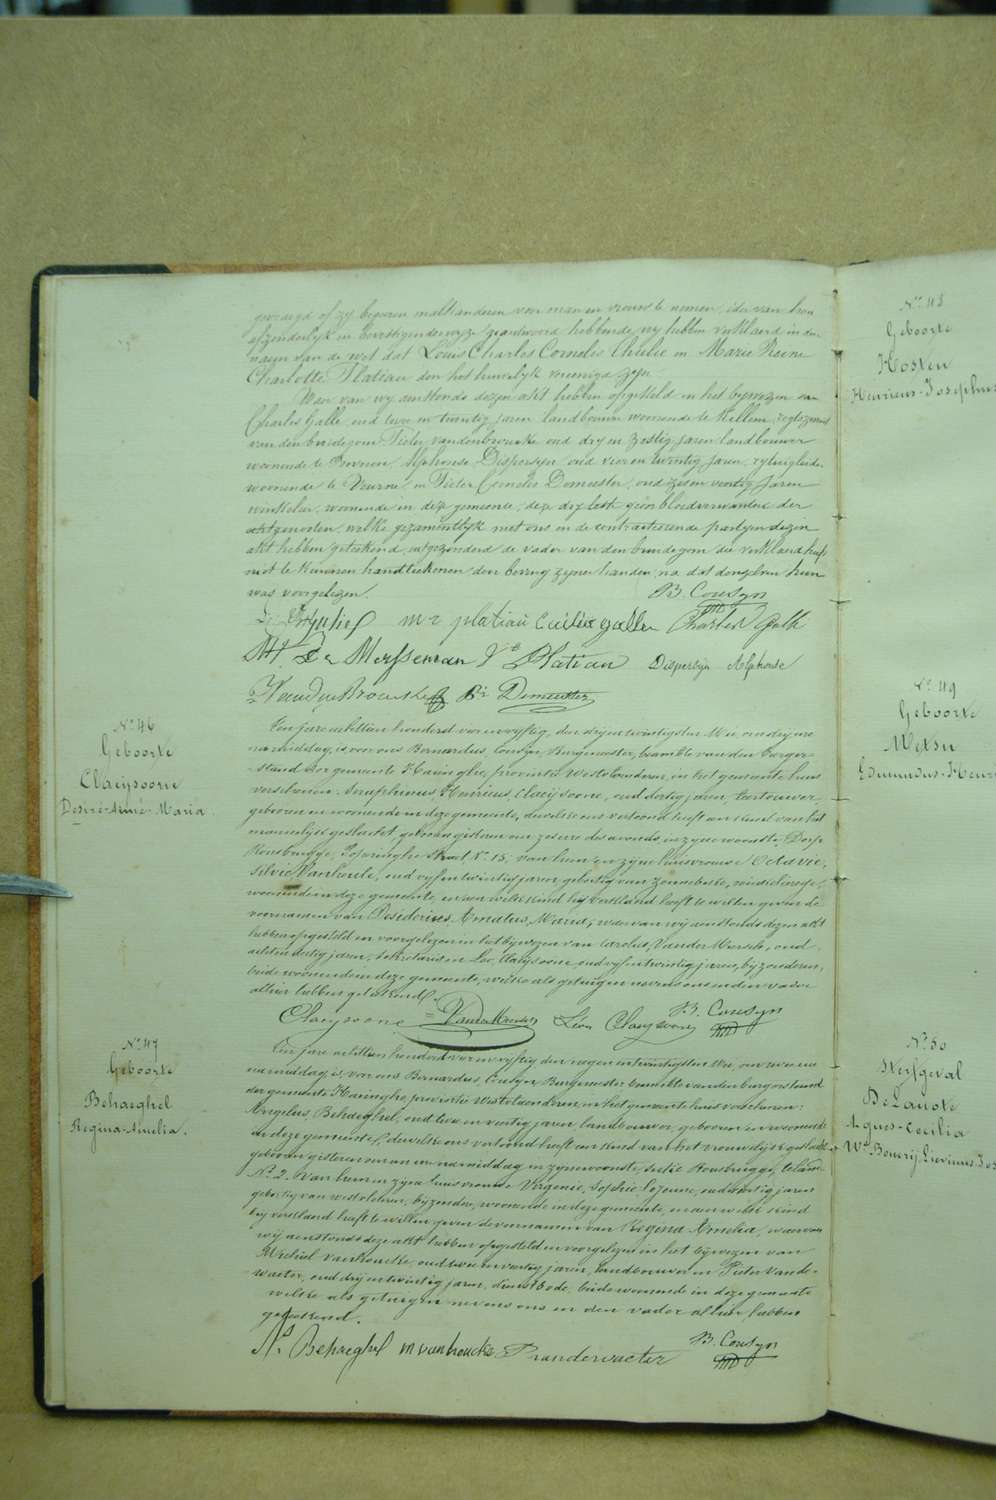 gevraegd of zy begeeren malkanderen voor man en vrouw te nemen, ider van hen
afzonderlyk en bevestigenderwyze geantwoord hebbende, wy hebben verklaerd in den
naem van de wet dat Louis Charles Cornelis Thielie en Marie Reine
Charlotte Platiau door het huwelyk vereenigd zyn.
Waer van wy aenstonds dezen akt hebben opgesteld in het bywezen van
Charles Galle, oud twee en twintig jaren, landbouwer woonende te Killem,
van den bruidegom Pieter Vandenbroucke oud dry en zestig jaren landbouwer
woonende te Alphonse Dispersyn oud vier en twintig jaren,
woonende te Veurne en Pieter Cornelis Demeester, oud jaren
winkelier, woonende in deze gemeente, deze dry laetste geen bloedverwanten der
aktgenoten, welke gezamentlyk met ons en de contracteerende partyen dezen
akt hebben geteekend, uitgezonderd de vader van den bruidegom die verklaerd heeft
niet te kunnen handteekenen, den beving zyner handen, na dat dezelven hun
was voorgelezen. B. Cousyn
m r platiau Cecilie galle Charles Galle
De Mersseman Platiau Dispersijn Alphonse
VandenBroucke Pr Demeester
N° 46
Geboorte
Claeysoone
Desiré-Aimé-Maria
Ten jare achttien honderd vier en vyftig, den dryentwintigsten Mei, om dry ure
na middag, is voor ons Bernardus Cousyn, Burgemeester, beambte van den burger-
stand der gemeente Haringhe, provintie Westvlaenderen, in het gemeente huis
verschenen: Seraphinus, Henricus, Claeysoone, oud dertig jaren,
geboren en woonende in deze gemeente, dewelke ons vertoond heeft een kind van het
mannelyk geslacht, geboren gisteren om zes ure des avonds, in zyne woonste, Dorp
Rousbrugge, Poperinghe straet N° 15, van hem en zyne huisvrouwe Octavie,
Silvie Vanhaute, oud vyfentwintig jaren, geboortig van Zonnebeke, winkelierege,
woonende in deze gemeente, en aen welk kind hy verklaerd heeft te willen geven de
voornamen van Desiderius, Amatus, Maria, waer van wij aenstonds dezen akt
hebben opgesteld en voorgelezen in het bijwezen van Carolus, Vander Mersch, oud
achtendertig jaren, sekretaris en Leo, Claeysoone, oud vyfentwintig jaren, bijzonderen,
beide woonende in deze gemeente, welke als getuigen nevens ons en den vader
alhier hebben geteekend. B. Cousyn
Claeysoone VanderMersch Léon Claeysoone
N° 47
Geboorte
Behaeghel
Regina-Amelia.
Ten jare achttien honderd vier en vyftig den negen entwintigsten Mei, om twee ure
na middag, is voor ons Bernardus, Cousyn, Burgemeester beambte van den burgerstand
der gemeente Haringhe, provintie Westvlaenderen, in het gemeente huis verschenen:
Angelus Behaeghel, oud twee en veertig jaren, landbouwer, geboren en woonende
in deze gemeente, dewelke ons vertoond heeft een kind van het vrouwelijk geslacht
geboren gisteren om een ure na middag in zyne woonste, Rousbrugge,
N° 2, van hem en zyne huisvrouwe Virginie, Sophie Lejeune, oud veertig jaren
geboortig van Westvleteren, bijzondere, woonende in deze gemeente, en aen welk kind
hy verklaerd heeft te willen geven de voornamen van Regina Amelia, waer van
wij aenstonds deze akt hebben opgesteld en voorgelezen in het bijwezen van
Michiel Vanhoucke, oud twee en veertig jaren, landbouwer en Pieter Vande-
waeter, oud drij en twintig jaren, dienstbode, beide woonende in deze gemeente
welke als getuigen nevens ons en den vader alhier hebben
geteekend.
As Behaeghel m vanhoucke P vandewaeter B. Cousyn
N° 48
Geboorte
Hosten
Henricus-Josephus
N° 49
Geboorte
Metsu
Edmundus-Henri
N° 50
Sterfgeval
DeLanote
Agnes-Cecilia
We Bouverij Lievinus Jos